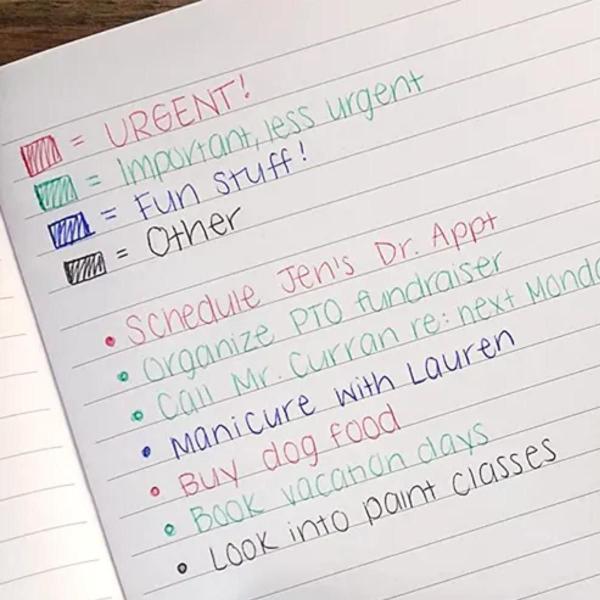 = URGENT!
= Important, less urgent
= Fun Stuff!
= Other
• Schedule Jen's Dr. Appt
• Organize PTO fundraiser
• Call Mr. Curran re: next Monda
• Manicure with Lauren
• Buy dog food
• Book vacation days
• Look into paint classes